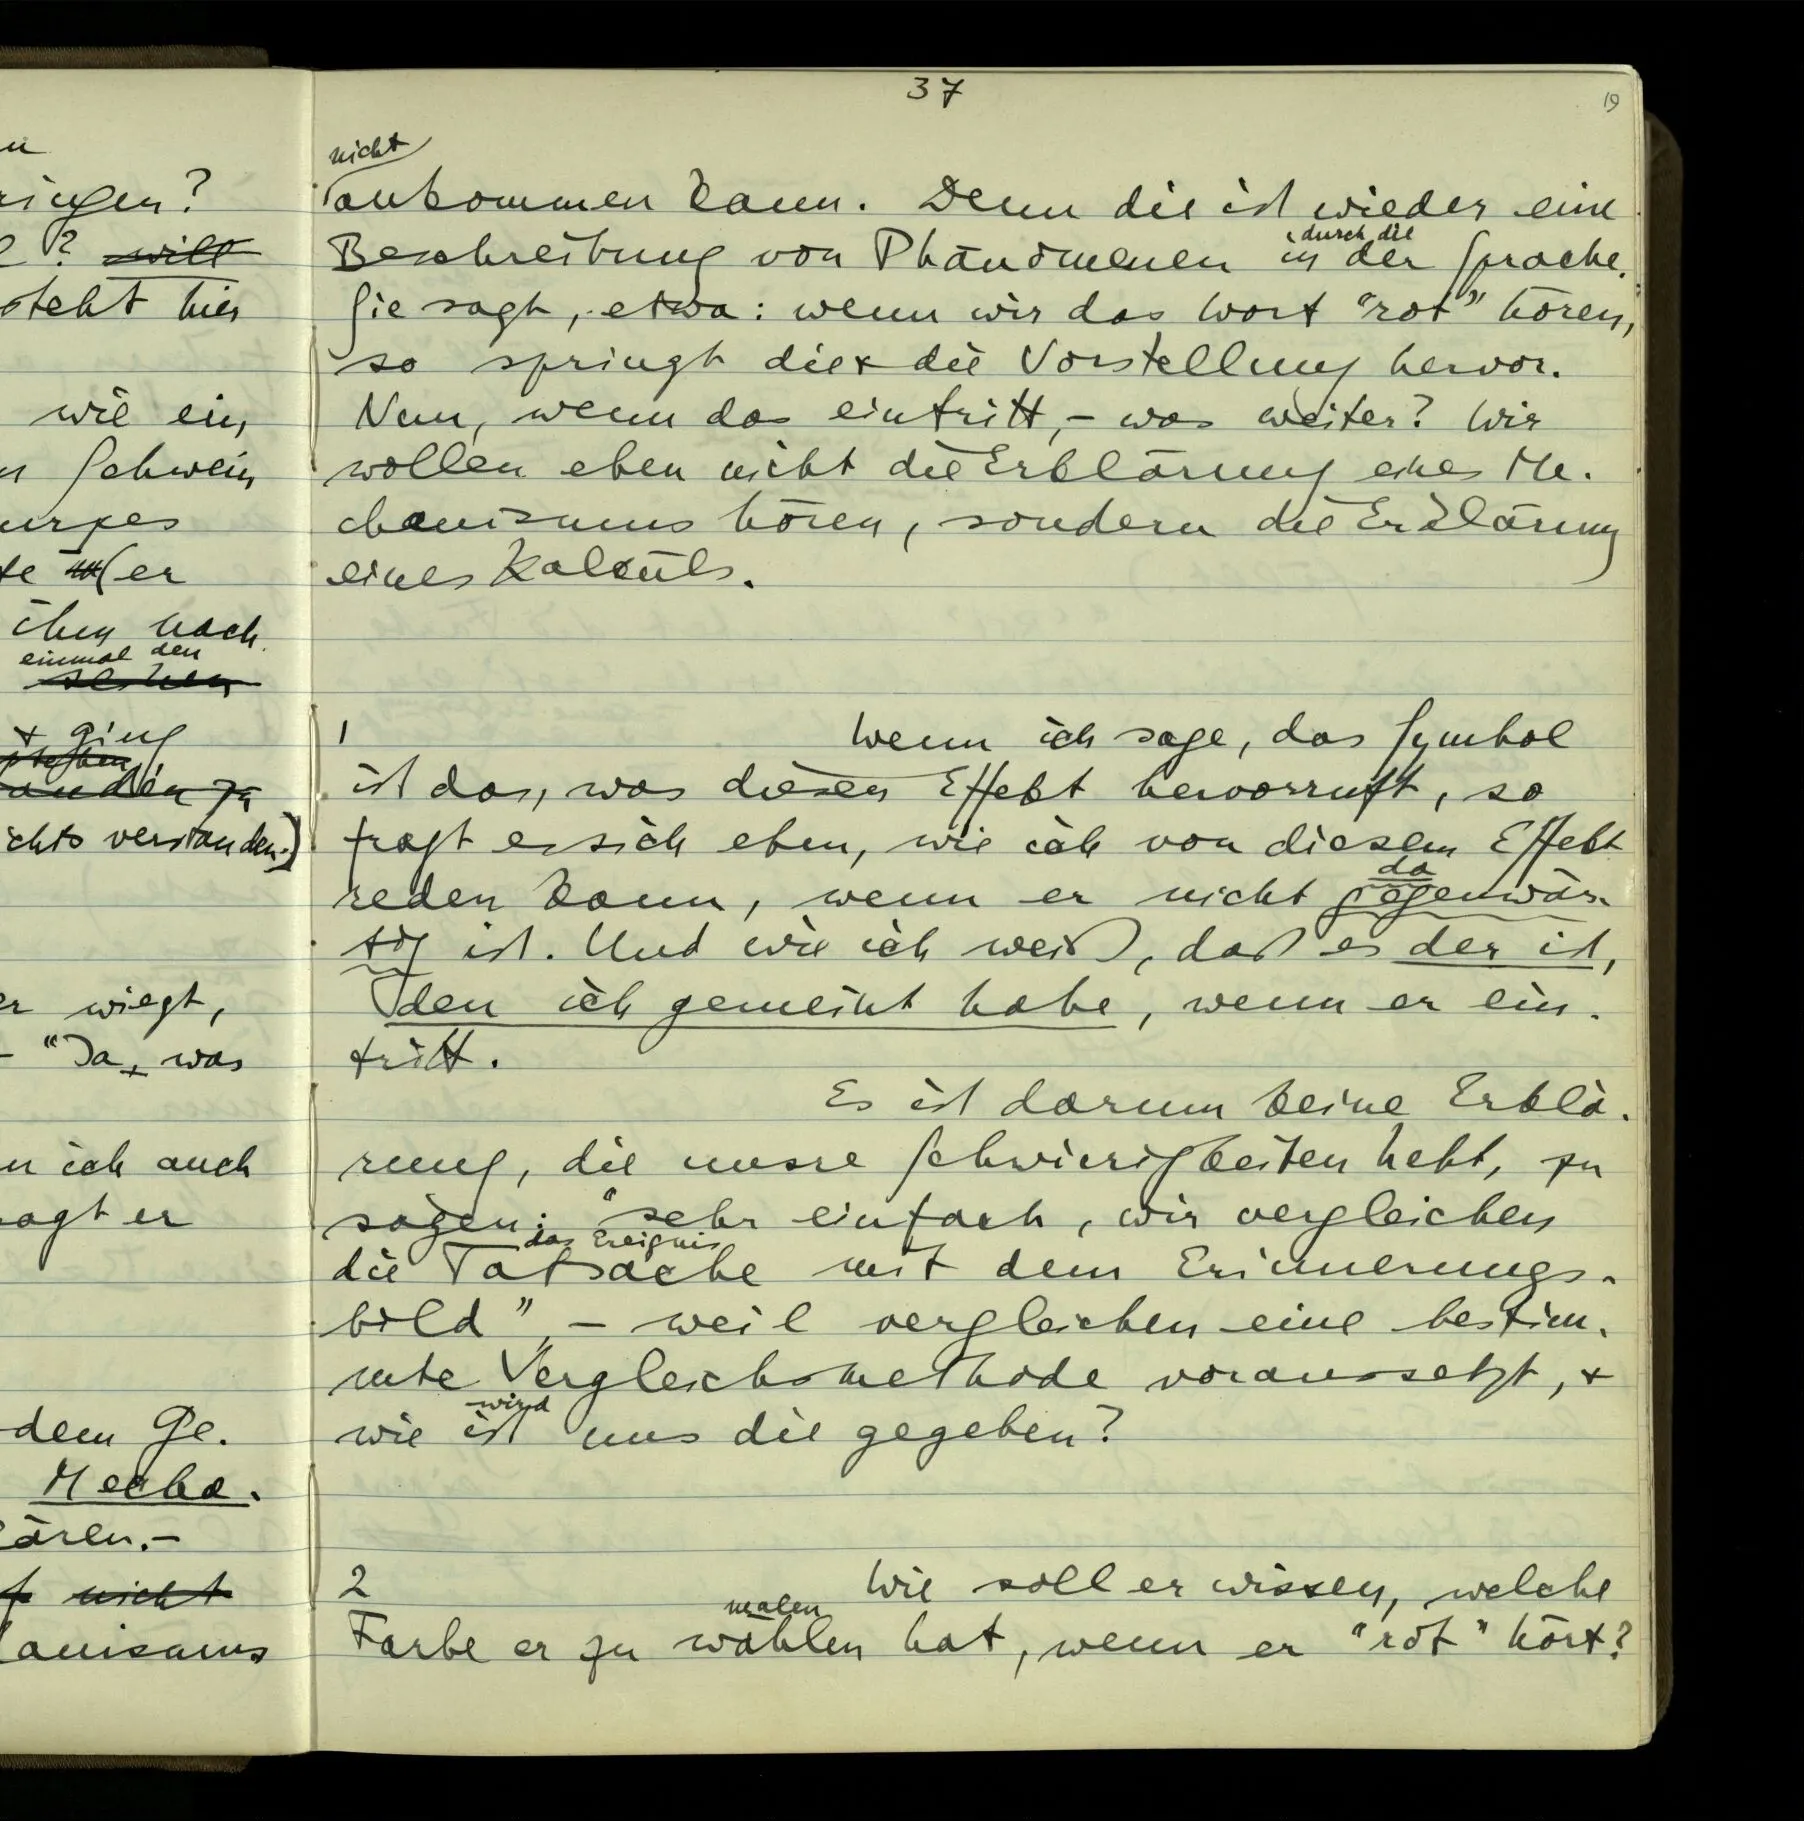 n
ringen?
? will
steht hier
wie ein
n Schwein
urges
te (er
ihm nach
einmal den
sehen
+ ging
stehen
anden zu
ichts verstanden.)
er wiegt,
– "Ja, was
n ich auch
sagt er
dem Ge-
Mecha-
ären.–
f nicht
hanismus
37
19
nicht
ankommen kann. Denn die ist wieder eine
durch die
Beschreibung von Phänomenen in der Sprache.
Sie sagt, etwa: wenn wir das Wort "rot" hören,
so springt die die Vorstellung hervor.
Nun, wenn das eintritt, – was weiter? Wir
wollen eben nicht die Erklärung eines Me-
chanismus hören, sondern die Erklärung
eines Kalküls.
1 Wenn ich sage, das Symbol
ist das, was diesen Effekt hervorruft, so
fragt es sich eben, wie ich von diesem Effekt
da
reden kann, wenn er nicht gegenwär-
tig ist. Und wie ich weiß, daß es der ist,
den ich gemeint habe, wenn er ein-
tritt.
Es ist darum keine Erklä-
rung, die unsre Schwierigkeiten hebt, zu
sagen: "sehr einfach, wir vergleichen
das Ereignis
die Tatsache mit dem Erinnerungs-
bild", – weil vergleichen eine bestim-
mte Vergleichsmethode voraussetzt, +
wird
wie ist uns die gegeben?
2 Wie soll er wissen, welche
malen
Farbe er zu wählen hat, wenn er "rot" hört?